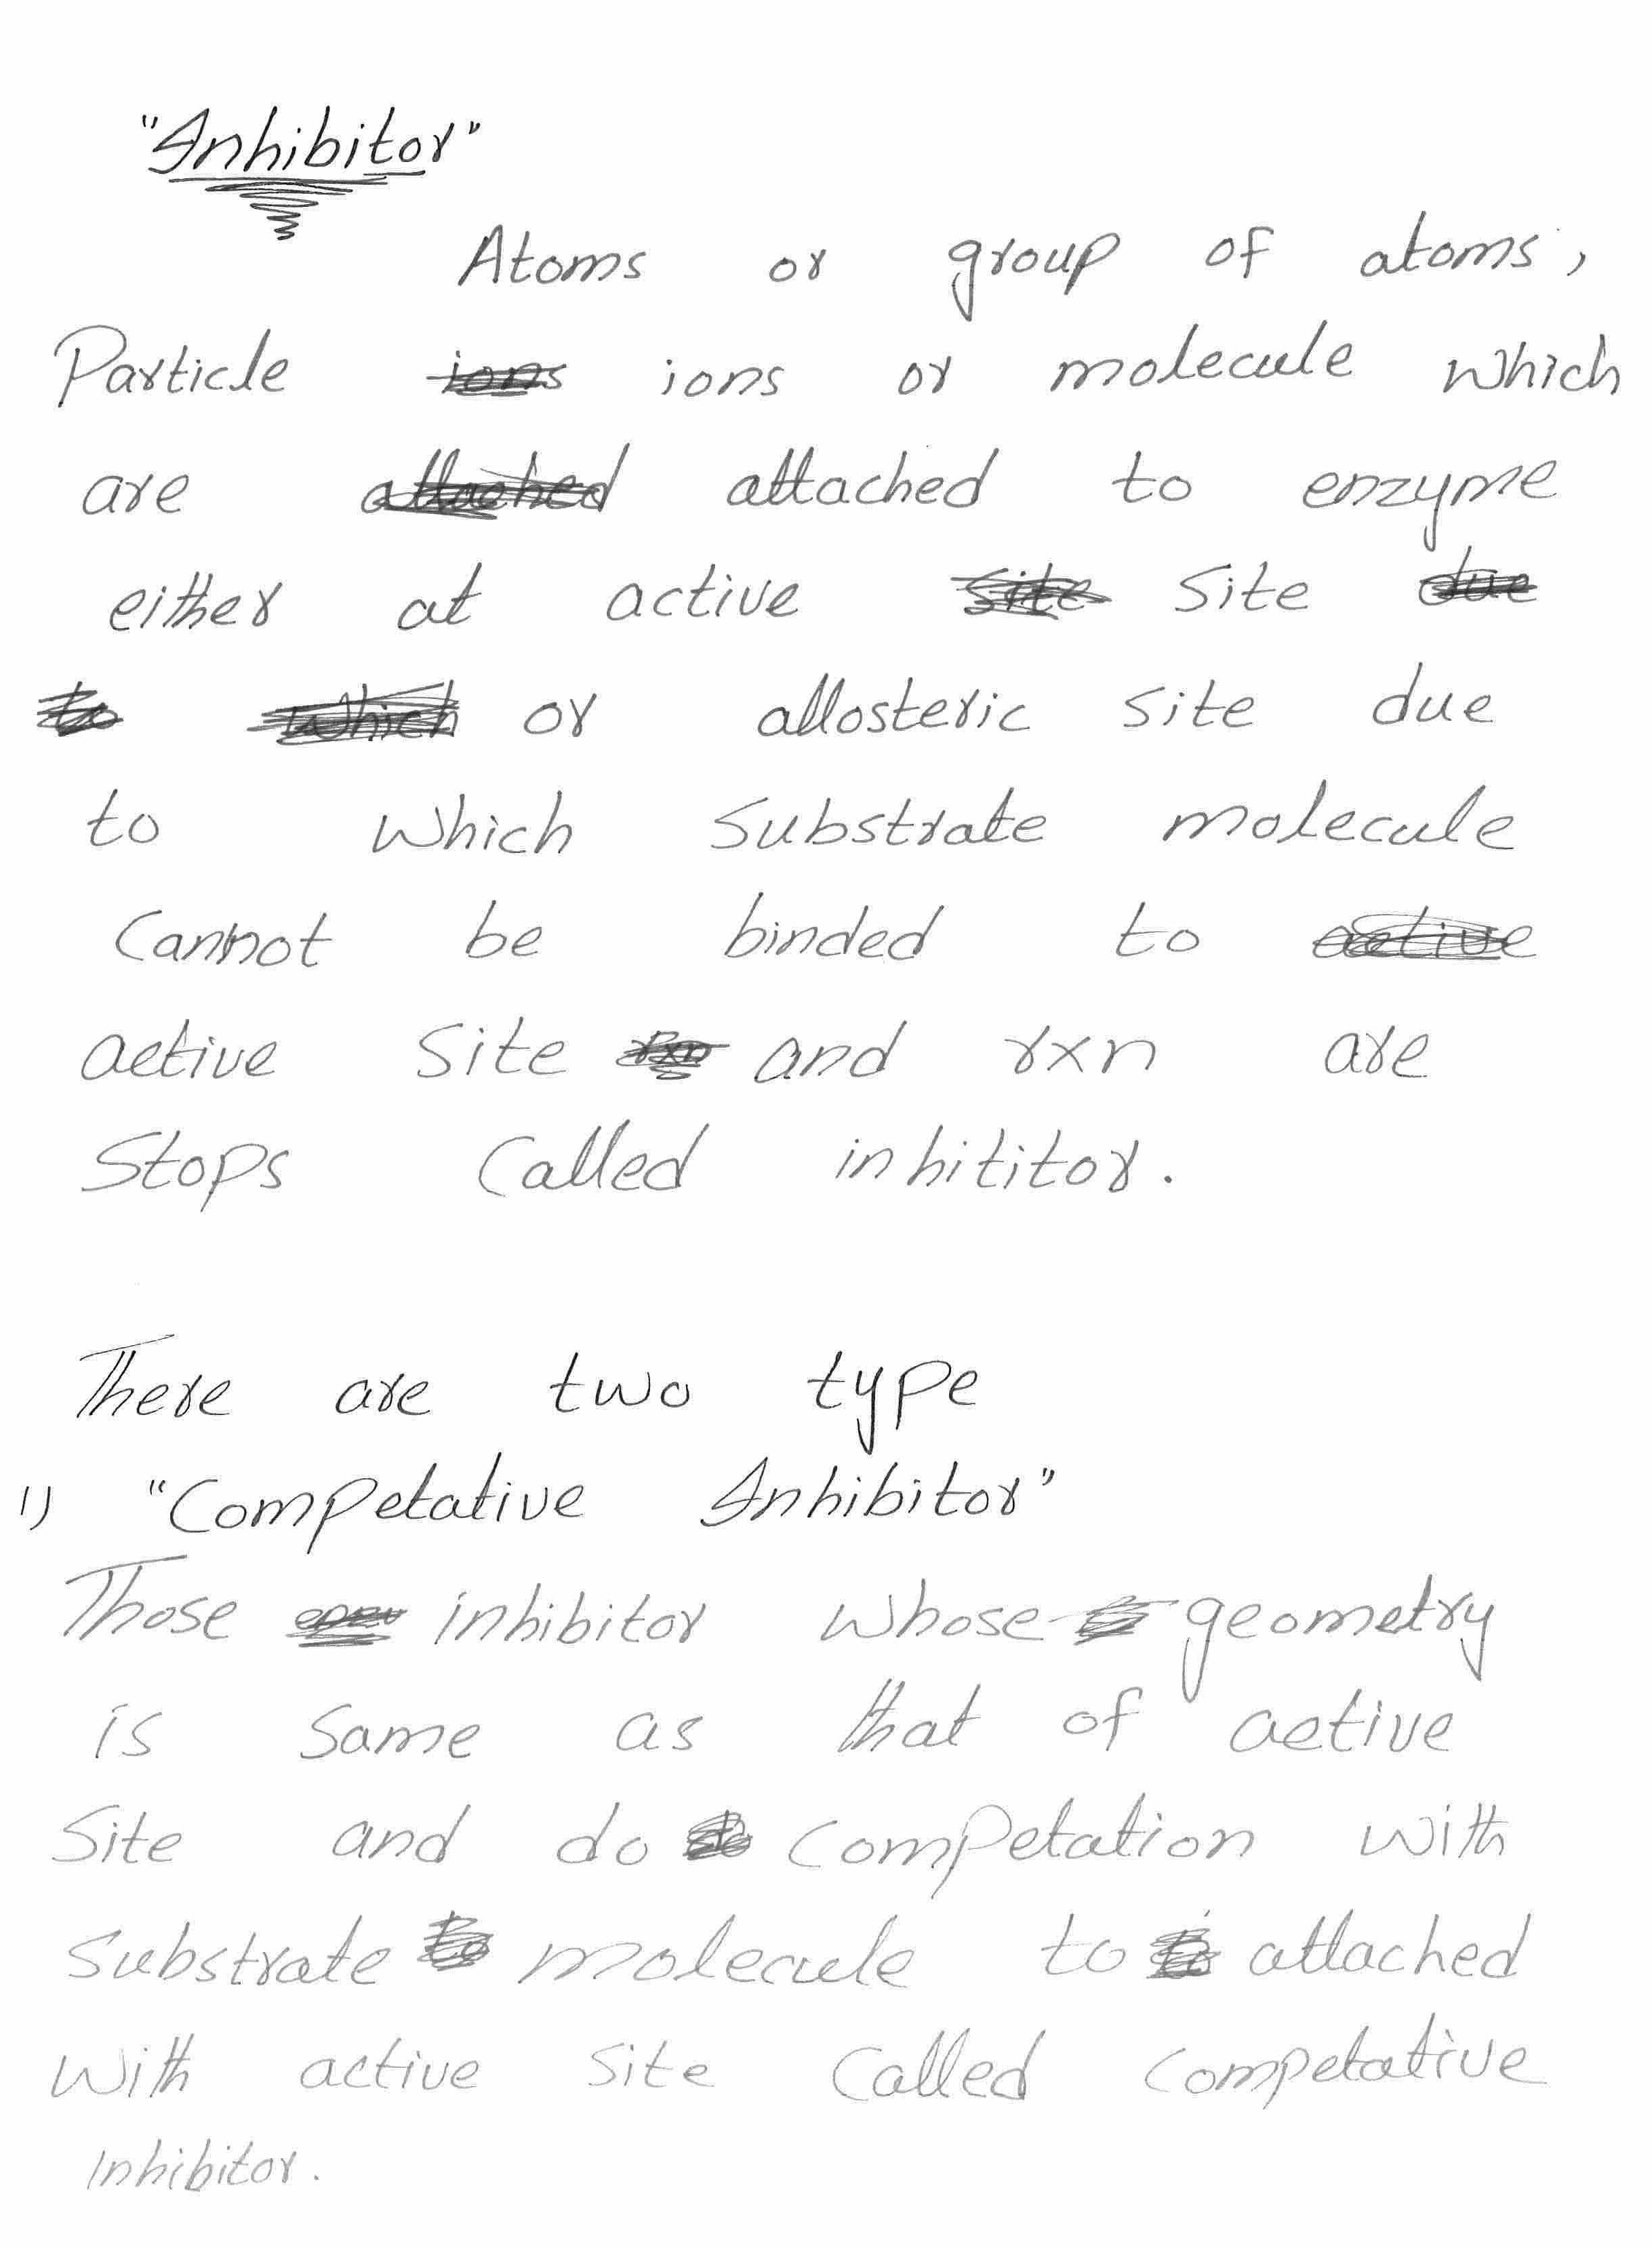 "Inhibitor"
Atoms or group of atoms,
Particle ions ions or molecule which
are attached attached to enzyme
either at active site site due
to which or allosteric site due
to which substrate molecule
cannot be binded to active
active site rxn and rxn are
stops called inhititor.
There are two type
1) "Competative Inhibitor"
Those inhibitor whose geometry
is same as that of active
site and do competation with
substrate to molecule to attached
with active site called competative
inhibitor.